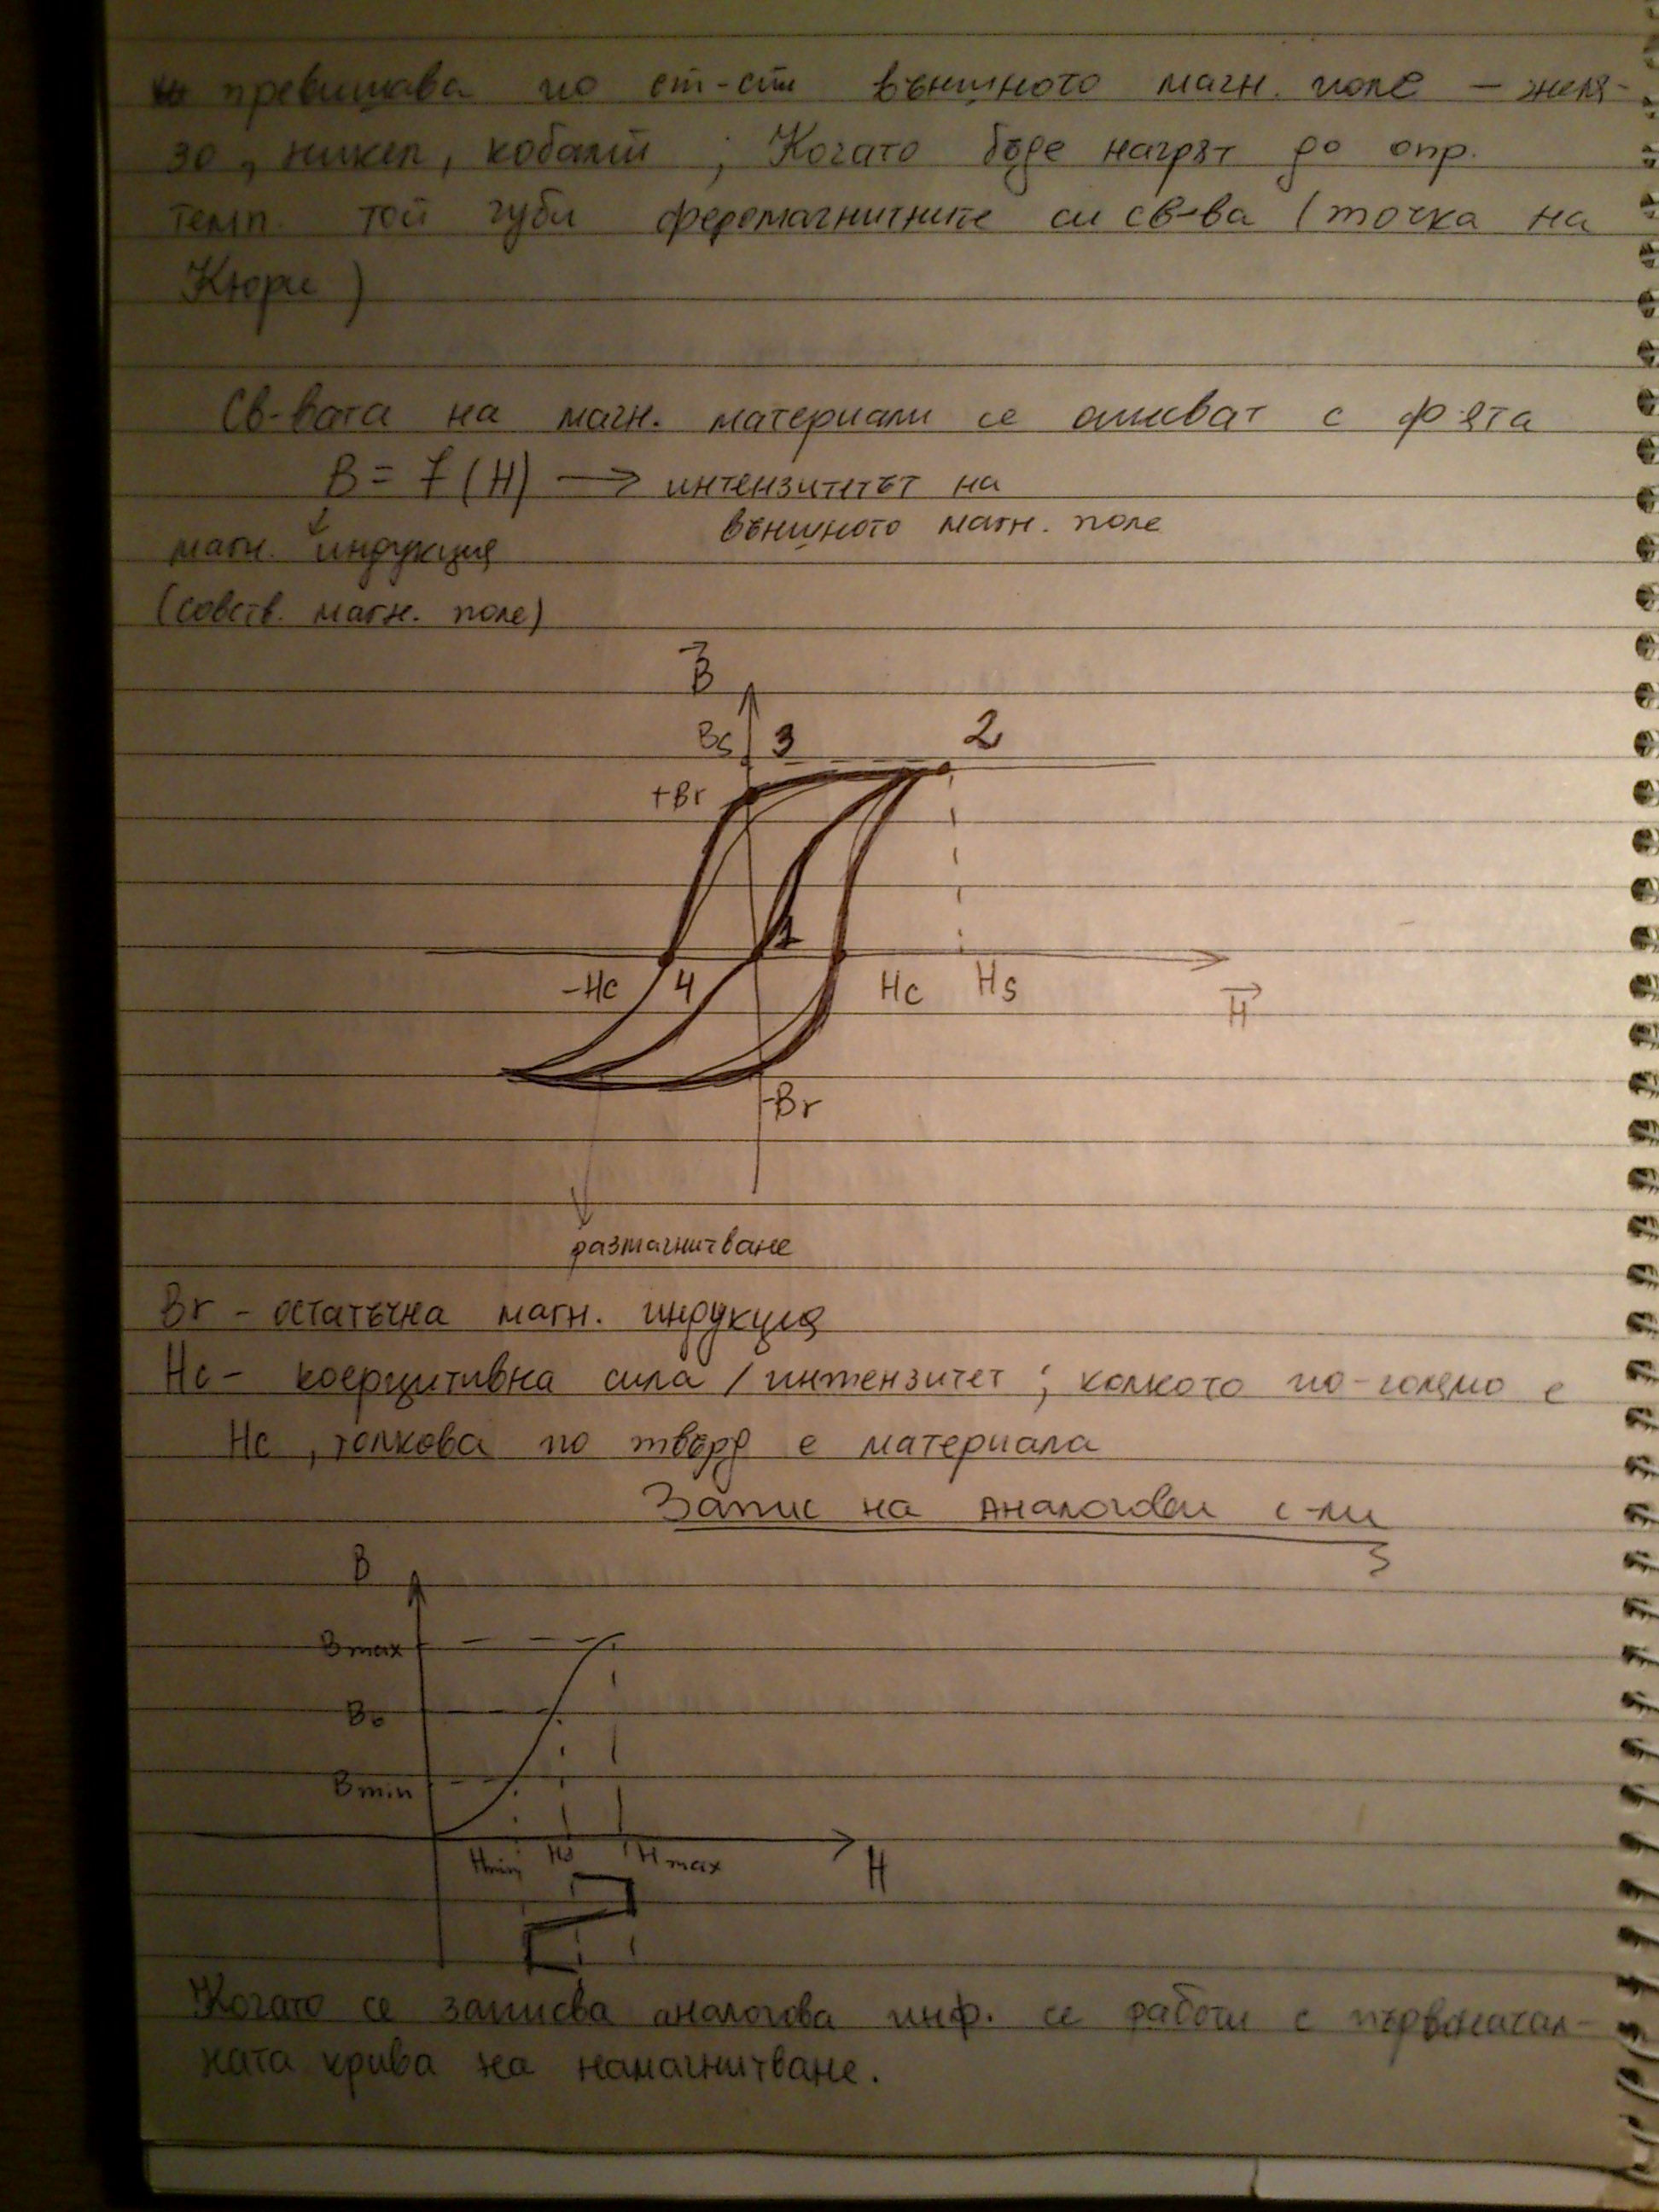 превишава по ст-ст външното магн. поле – желя-
зо, никел, кобалт ; Когато бъде нагрят до опр.
темп. той губи феромагнитните си св-ва (точка на
Кюри)
Св-вата на магн. материали се описват с ф-ята
B = f (H) → интензитетът на
външното магн. поле
магн. индукция
(собств. магн. поле)
B
Bs 3 2
+Br
1
-Hc 4 Hc Hs
H
-Br
размагнитване
Br - остатъчна магн. индукция
Hc - коерцитивна сила / интензитет ; колкото по-голямо е
Hc , толкова по твърд е материала
Запис на аналогови с-ли
B
Bmax
B0
Bmin
Hmin H0 Hmax H
Когато се записва аналогова инф. се работи с първоначал-
ната крива на намагнитване.